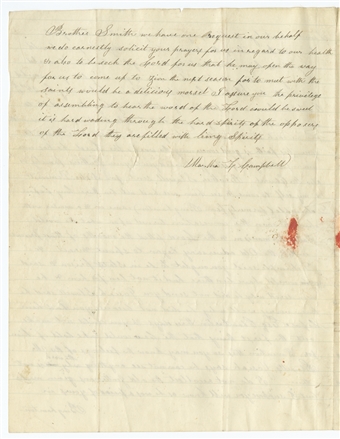 Brother Smith we have one Request in our behalf
we do earnestly solicit your prayers for us in regard to our health
& also to beseech the Lord for us that he may open the way
for us to come up to Zion the next season for to meet with the
saints would be a delicious morsel I assure you the privelege
of assembling to hear the word of the Lord would be sweet
it is hard wading through the hard spirits of the opposers
of the Lord they are filled with lying spirits
Martha H Campbell